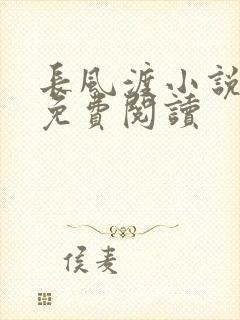 長風渡小説
免費閱讀
侯麦